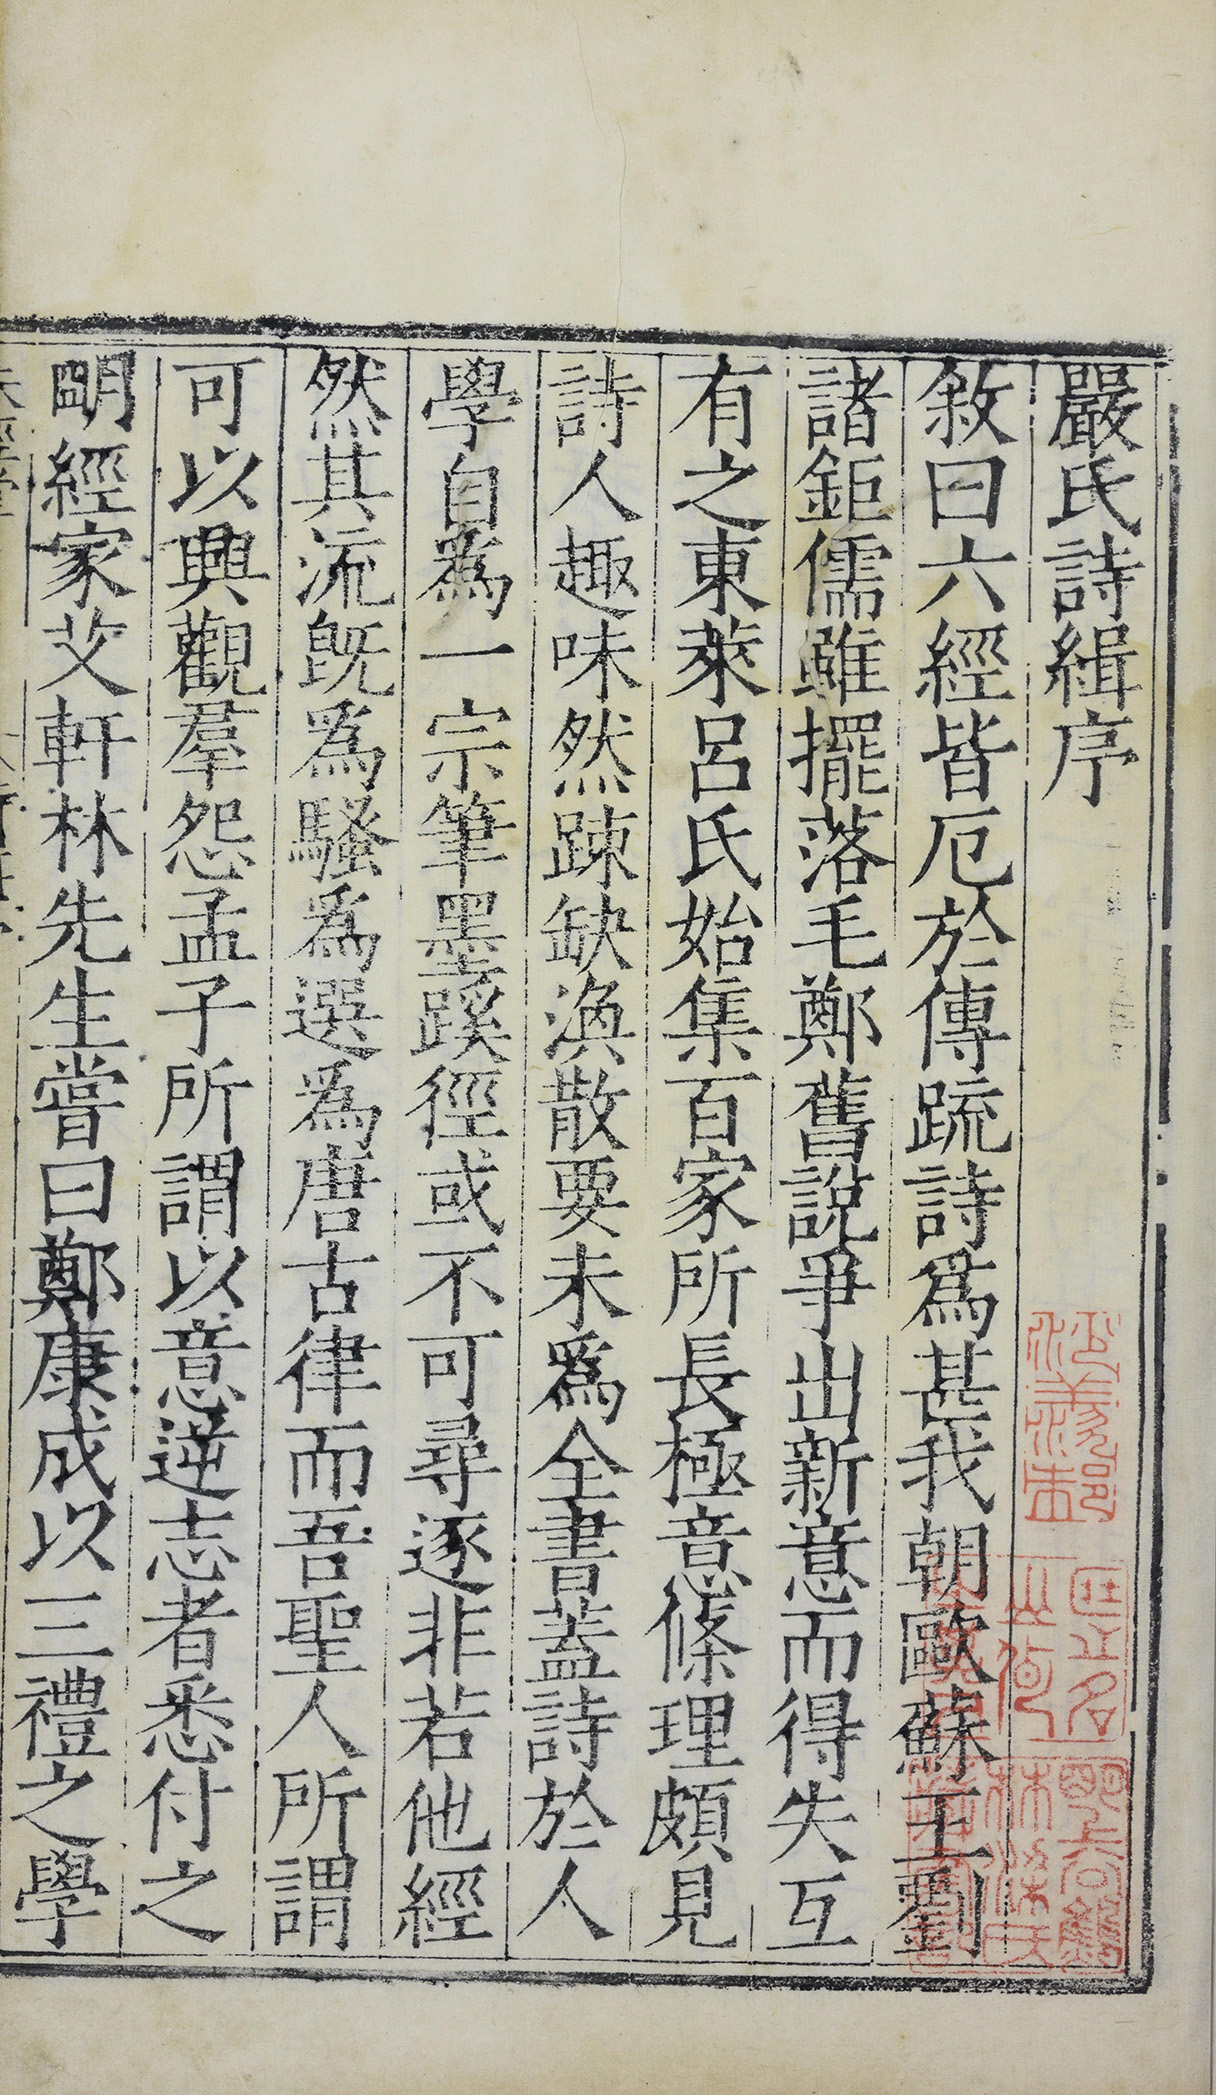 嚴氏詩緝序
敘曰六經皆厄於傳䟽詩爲甚我朝歐蘇王劉
諸鉅儒雖擺落毛鄭舊說爭出新意而得失互
有之東萊呂氏始集百家所長極意條理頗見
詩人趣味然踈缺渙散要未爲全書蓋詩於人
學自爲一宗筆墨蹊徑或不可尋逐非若他經
然其流旣爲騷爲選爲唐古律而吾聖人所謂
可以興觀羣怨孟子所謂以意逆志者悉付之
明經家艾軒林先生嘗曰鄭康成以三禮之學